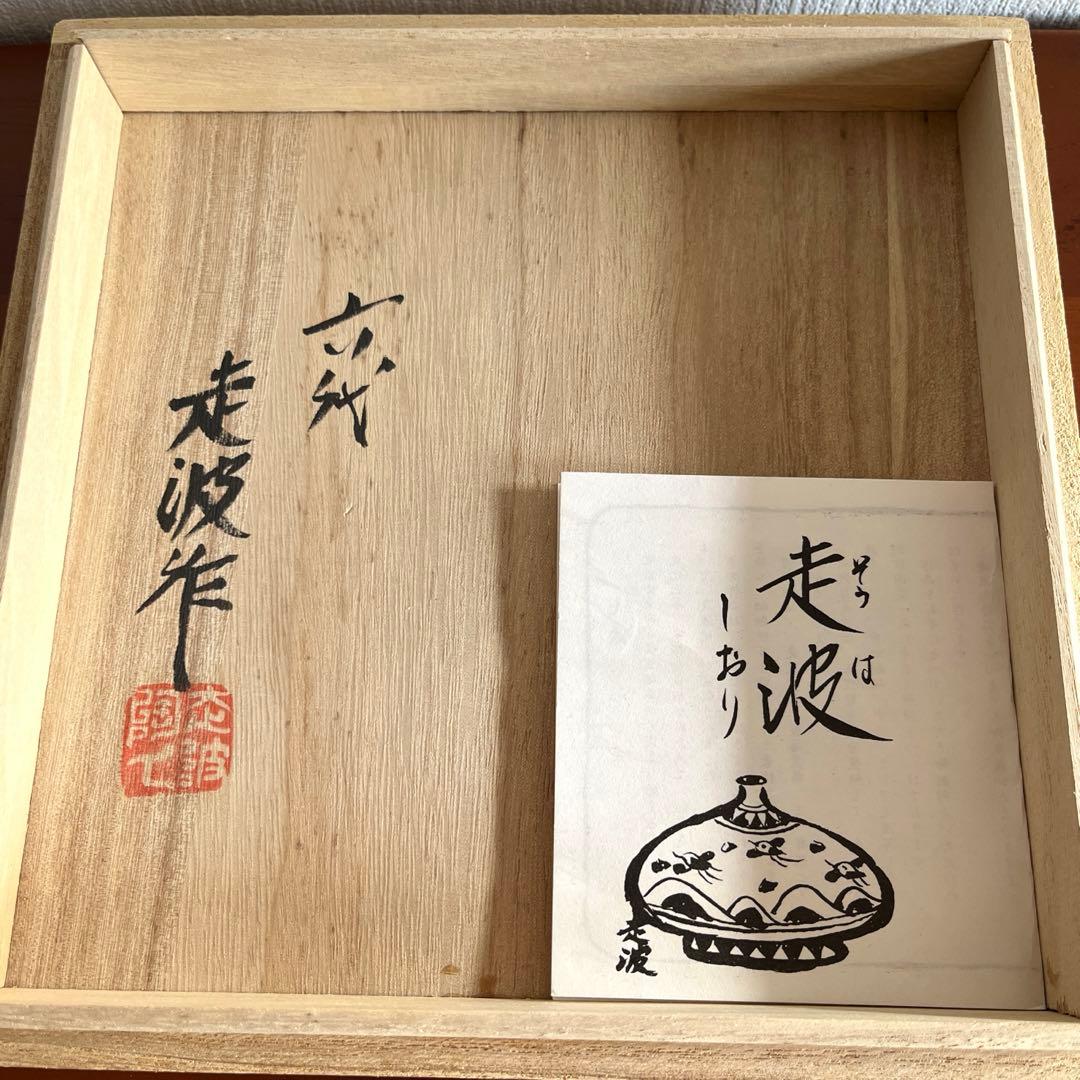 六代
走波作
走波
そうは
しおり
走波